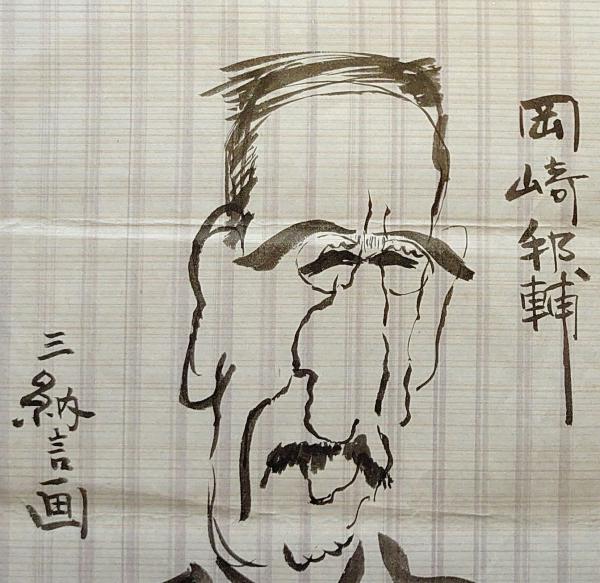 岡崎邦輔
三納言画